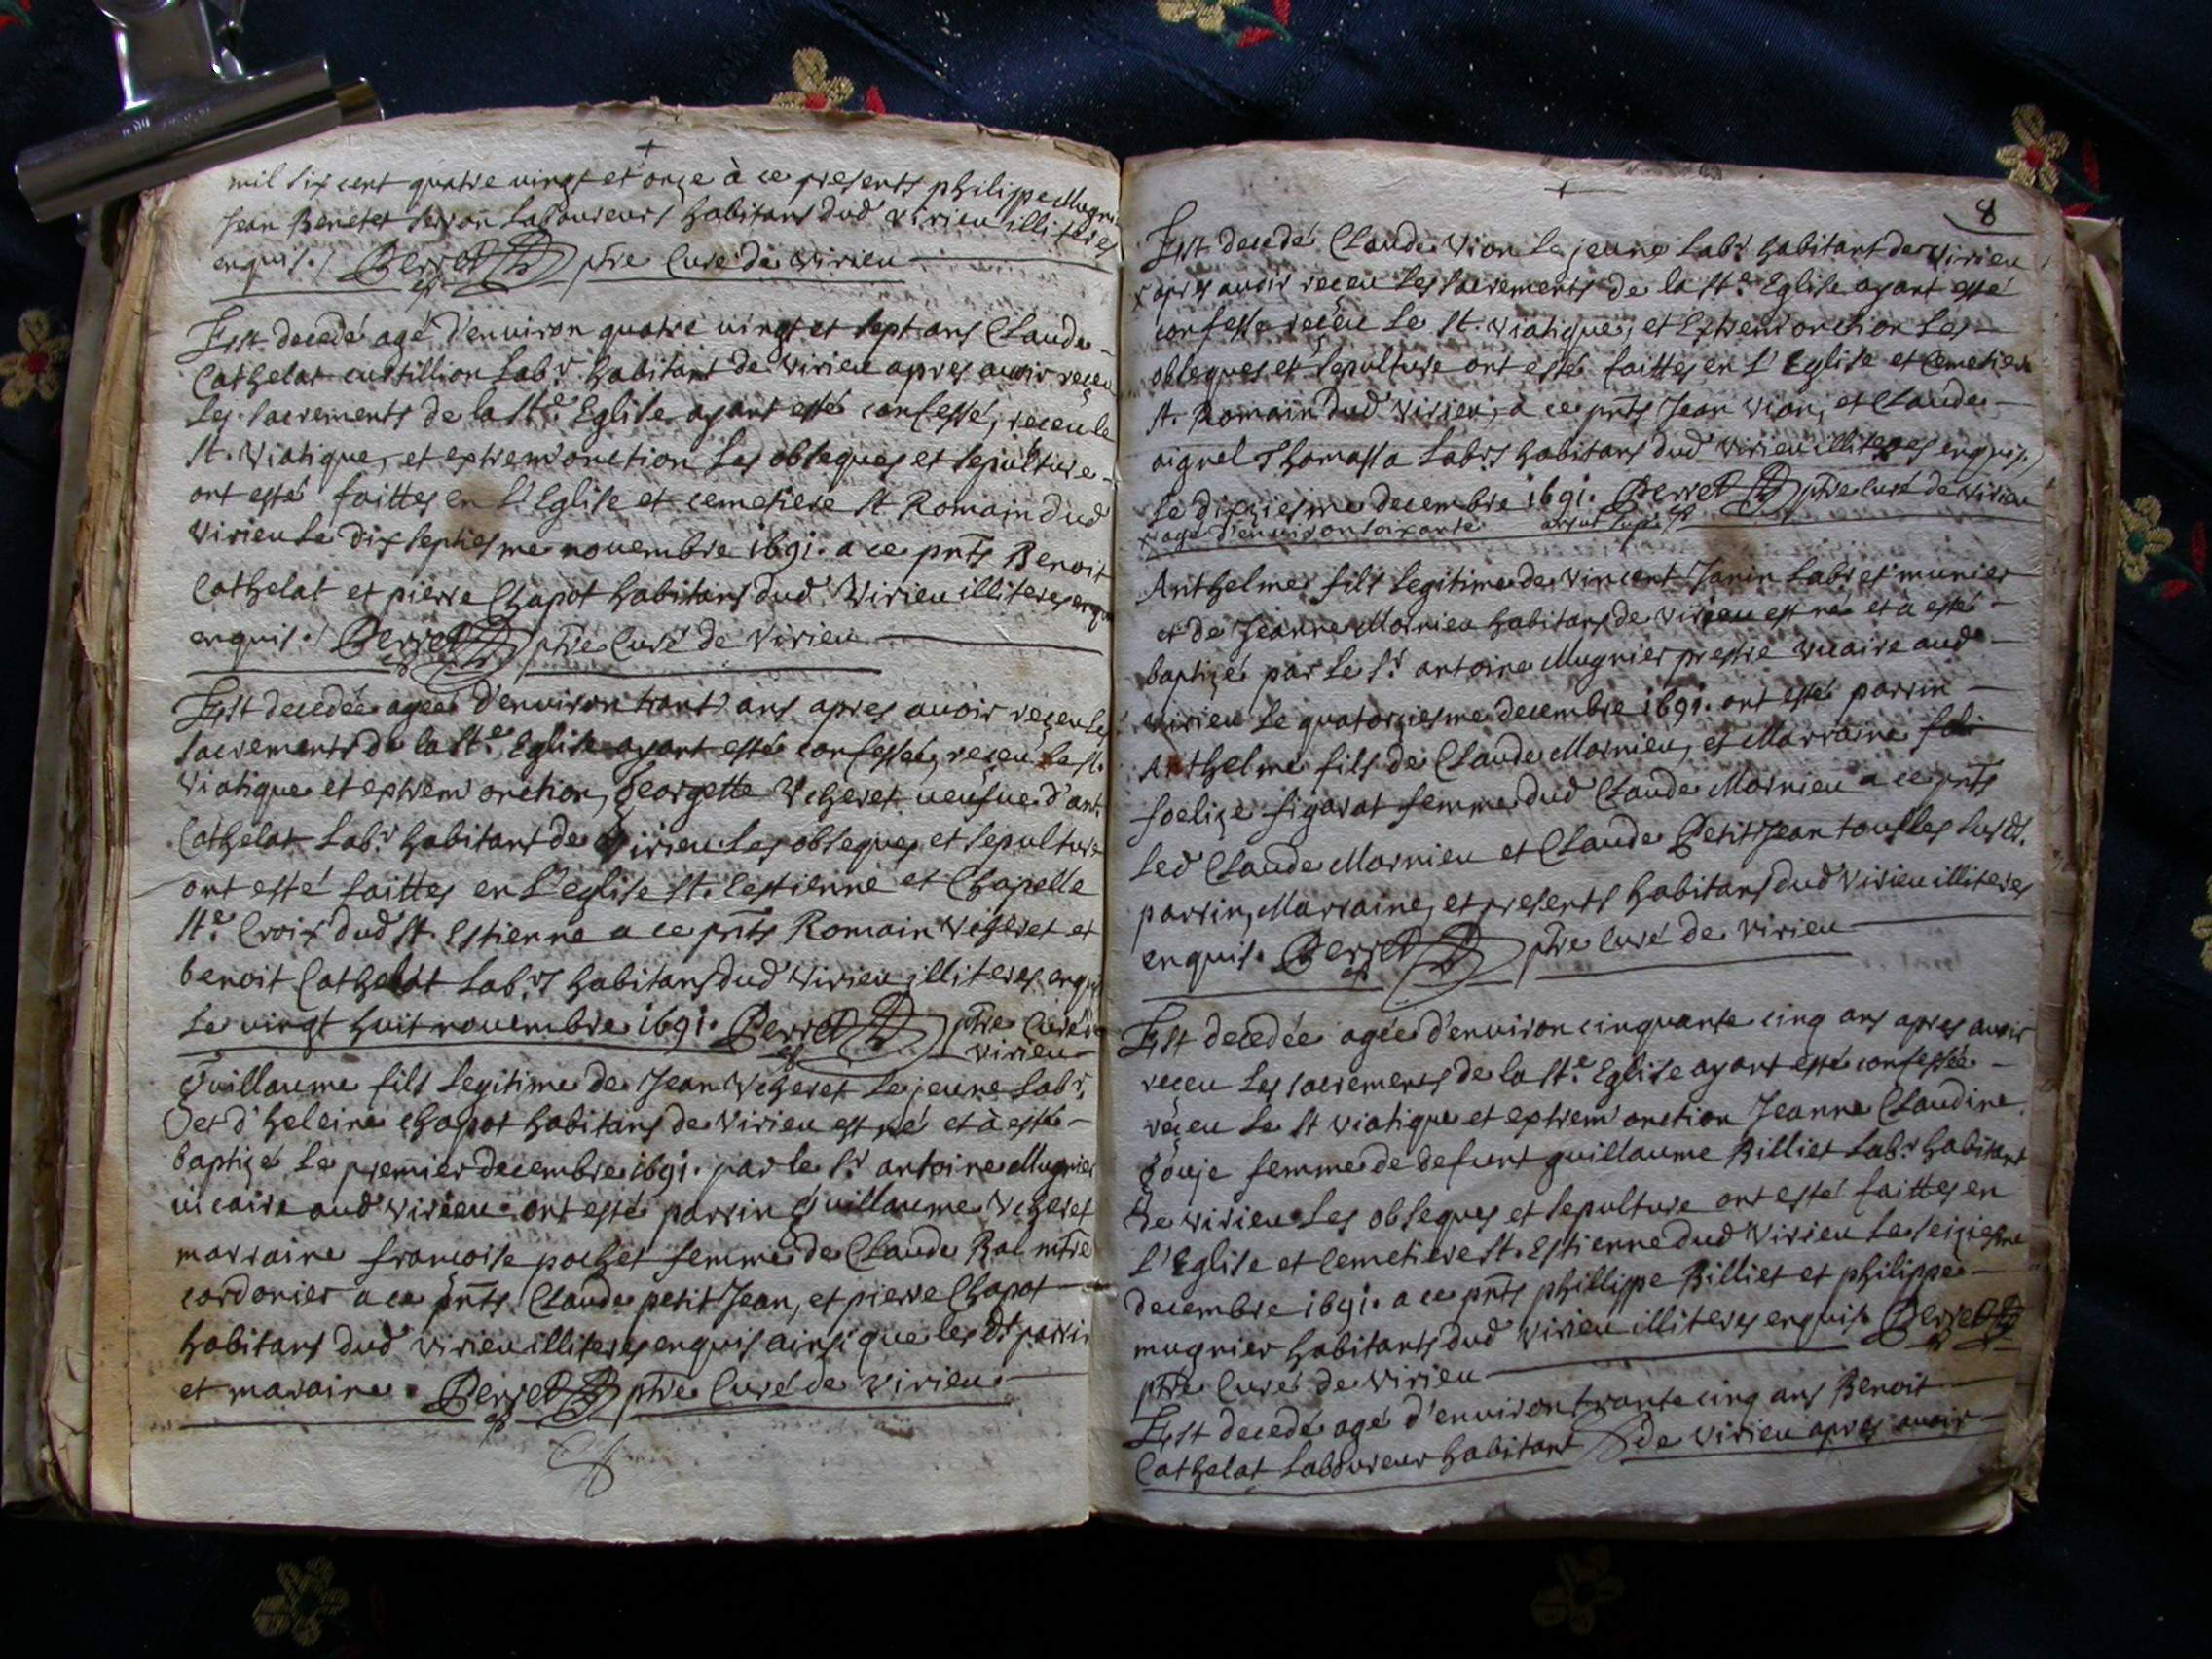 mil six cent quatre vingt et onze à ce presents philippe Mugnier
Jean Benetet Serron Laboureurs habitans dud virieu illiteres
enquis. / Perret ptre Curé de virieu
Est decedé agé d'environ quatre vingt et sept ans Claude
Cathelat cuttillion Labr. habitant de virieu apres avoir receu
les sacrements de la Ste. Eglise ayant esté confessé, receu le
St. viatique, et extrem'onction les obseques et sepulture
ont esté faittes en L'Eglise et cemetiere St Romain dud
virieu le dix septiesme novembre 1691. a ce pnts Benoit
Cathelat et pierre Chapot habitans dud virieu illiteres enqu
enquis. / Perret ptre Curé de virieu
Est decedée ageé d'environ trant' ans apres avoir receu les
sacrements de la Ste. Eglise ayant esté confessée, receu le st.
viatique et extrem'onction, georgette Vcheret veufve d'ant.
Cathelat Labr. habitant de virieu les obseques et sepulture
ont esté faittes en L'eglise St. Estienne et Chapelle
Ste. Croix dud St. Estienne a ce pnts Romain Vcheret et
benoit Cathelat Labrs habitans dud virieu illiteres enqui
le vingt huit novembre 1691. Perret ptre Curé de
virieu
Guillaume fils legitime de Jean Vcheret le jeune Labr.
et d'heleine chapot habitans de virieu est né et à esté
baptizé le premier decembre 1691. par le Sr antoine Mugnier
vicaire aud virieu. ont esté parrin Guillaume Vcheret
marraine francoise pochet femme de Claude Bal mtre
cordonier a ce pnts Claude petit Jean, et pierre Chapot
habitans dud virieu illiteres enquis ainsi que les dt parrin
et maraine. Perret ptre Curé de virieu.
8
Est decedé Claude Vion le jeune Labr. habitant de virieu
x apres avoir receu les sacrements de la Ste. Eglise ayant esté
confessé receu le St. viatique, et Extrem'onction les
obseques et sepulture ont esté faittes en L'Eglise et Cemetiere
St. Romain dud virieu, a ce pnts Jean vion, et Claude
aignel Thomassa Labrs habitans dud virieu illiteres enquis.
le dixziesme decembre 1691. Perret ptre curé de virieu
x agé d'environ soixante
Anthelme fils legitime de vincent Janin Labr et munier
et de Jeanne Mornieu habitans de virieu est né et à esté
baptizé par le Sr. antoine Mugnier prestre vicaire aud
virieu le quatorziesme decembre 1691. ont esté parrin
Anthelme fils de Claude Mornieu, et Marraine
foelize figarat femme dud Claude Mornieu a ce pnts
led Claude Mornieu et Claude Petit Jean tous les susdt.
parrin, Marraine, et presents habitans dud virieu illiteres
enquis. Perret ptre Curé de virieu
Est decedée agée d'environ cinquante cinq ans apres avoir
receu les sacrements de la Ste. Eglise ayant esté confessée
receu le St viatique et extrem'onction Jeanne Claudine
gouje femme de defunt guillaume Billiet Labr. habitant
de virieu les obseques et sepulture ont esté faittes en
L'Eglise et Cemetiere St. Estienne dud virieu le seiziesme
decembre 1691. a ce pnts phillippe Billiet et philippe
mugnier habitants dud virieu illiteres enquis. Perret
ptre Curé de virieu
Est decedé agé d'environ trante cinq ans Benoit
Cathelat Laboureur habitant de virieu apres avoir